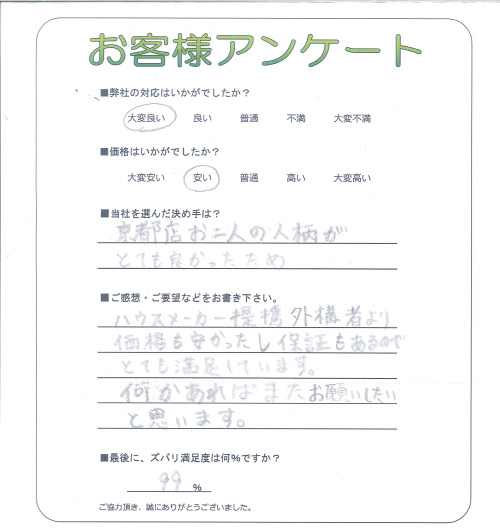 お客様アンケート
■弊社の対応はいかがでしたか？
大変良い 良い 普通 不満 大変不満
■価格はいかがでしたか？
大変安い 安い 普通 高い 大変高い
■当社を選んだ決め手は？
京都店お二人の人柄が
とても良かったため
■ご感想・ご要望などをお書き下さい。
ハウスメーカー提携外構者より
価格も安かったし保証もあるので
とても満足しています。
何かあればまたお願いしたい
と思います。
■最後に、ズバリ満足度は何％ですか？
99 %
ご協力頂き、誠にありがとうございました。